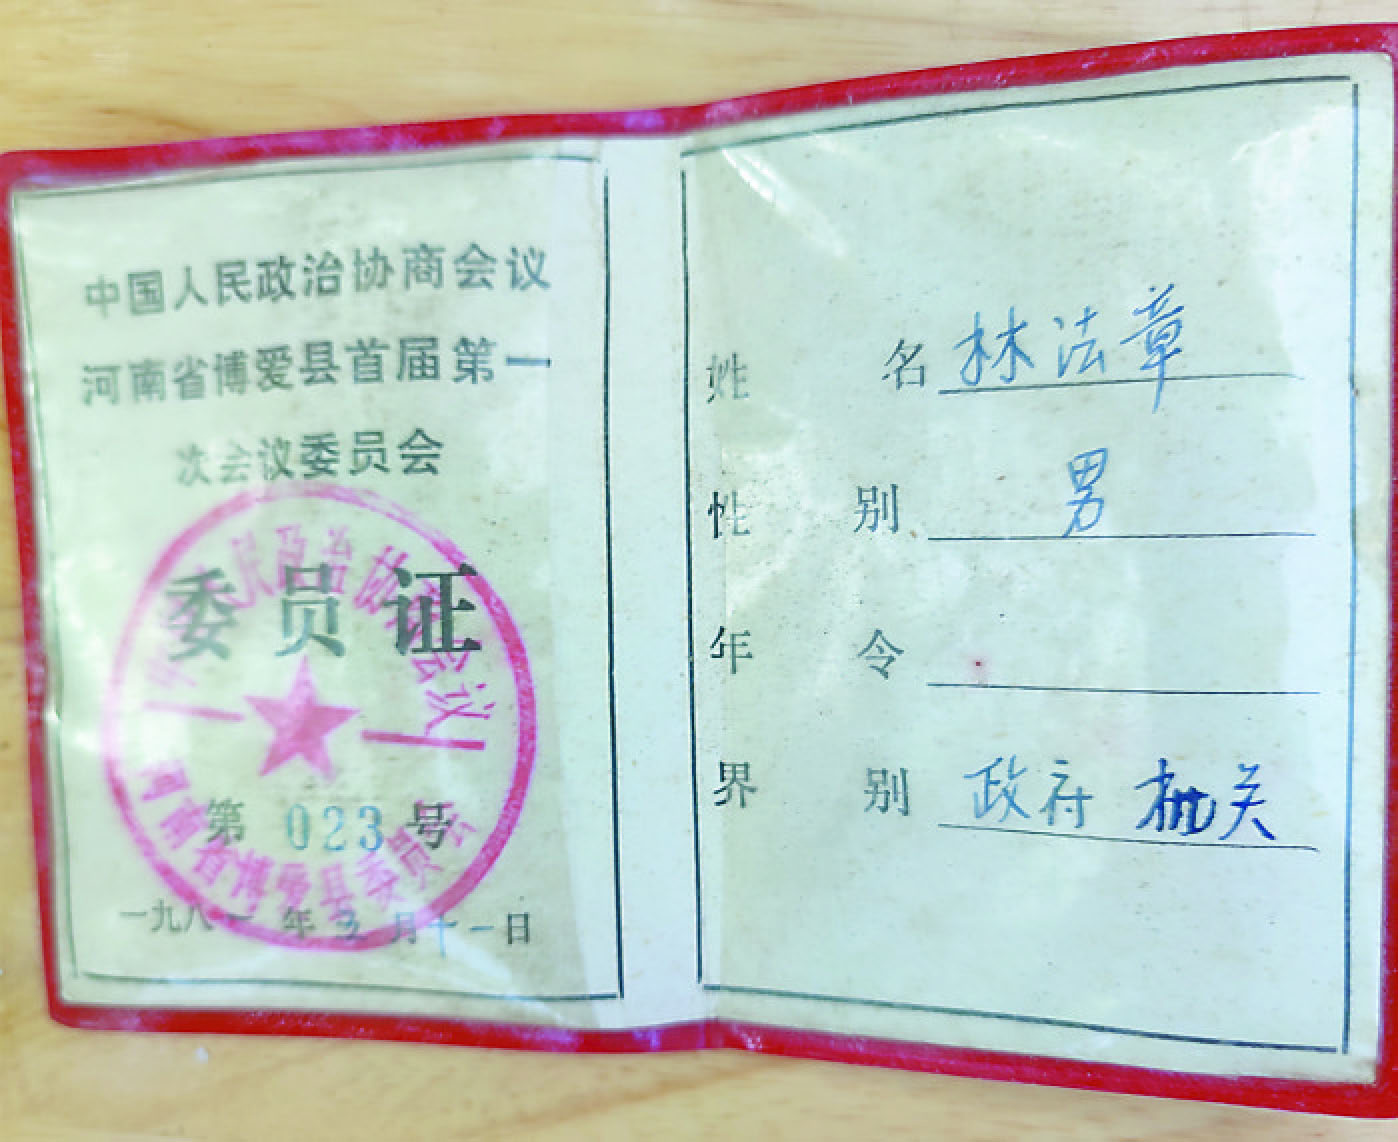 中国人民政治协商会议
河南省博爱县首届第一
次会议委员会
委员证
第 023 号
一九八一年 月十一日
人民政治协商会议
河南省博爱县委员会
姓 名 林法章
性 别 男
年 令
界 别 政府 机关